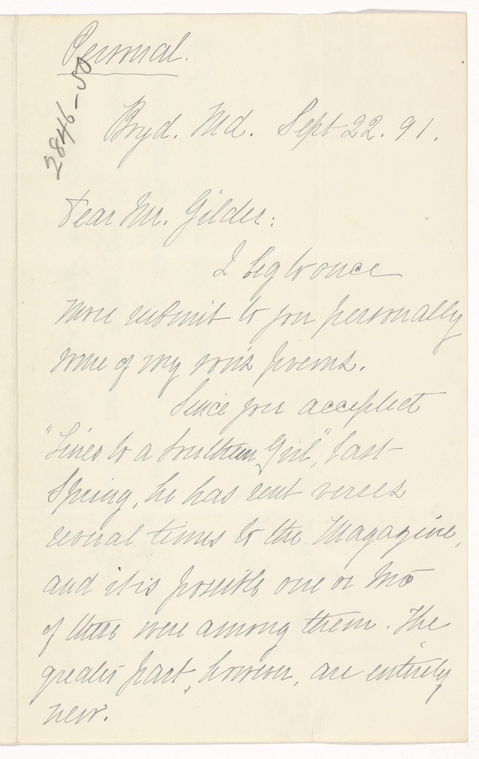 Personal.
2846-50
Md. Sept 22. 91.
Dear Mr. Gilder:
I beg to once
more submit to you personally
some of my son's poems.
Since you accepted
"Lines to a Southern Girl", last
Spring, he has sent verses
several times to the Magazine,
and it is possible one or two
of these were among them. The
greater part, however, are entirely
new.